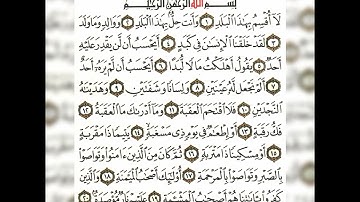 بِسْمِ اللَّهِ الرَّحْمَٰنِ الرَّحِيمِ
لَا أُقْسِمُ بِهَٰذَا الْبَلَدِ ١ وَأَنتَ حِلٌّ بِهَٰذَا الْبَلَدِ ٢ وَوَالِدٍ وَمَا وَلَدَ
٣ لَقَدْ خَلَقْنَا الْإِنسَٰنَ فِي كَبَدٍ ٤ أَيَحْسَبُ أَن لَّن يَقْدِرَ عَلَيْهِ
أَحَدٌ ٥ يَقُولُ أَهْلَكْتُ مَالًا لُّبَدًا ٦ أَيَحْسَبُ أَن لَّمْ يَرَهُۥ أَحَدٌ
٧ أَلَمْ نَجْعَل لَّهُۥ عَيْنَيْنِ ٨ وَلِسَانًا وَشَفَتَيْنِ ٩ وَهَدَيْنَٰهُ
النَّجْدَيْنِ ١٠ فَلَا اقْتَحَمَ الْعَقَبَةَ ١١ وَمَا أَدْرَىٰكَ مَا الْعَقَبَةُ ١٢
فَكُّ رَقَبَةٍ ١٣ أَوْ إِطْعَٰمٌ فِي يَوْمٍ ذِي مَسْغَبَةٍ ١٤ يَتِيمًا ذَا مَقْرَبَةٍ
١٥ أَوْ مِسْكِينًا ذَا مَتْرَبَةٍ ١٦ ثُمَّ كَانَ مِنَ الَّذِينَ ءَامَنُوا وَتَوَاصَوْا
بِالصَّبْرِ وَتَوَاصَوْا بِالْمَرْحَمَةِ ١٧ أُولَٰئِكَ أَصْحَٰبُ الْمَيْمَنَةِ ١٨ وَالَّذِينَ
كَفَرُوا بِـَٔايَٰتِنَا هُمْ أَصْحَٰبُ الْمَشْـَٔمَةِ ١٩ عَلَيْهِمْ نَارٌ مُّؤْصَدَةٌ ٢٠